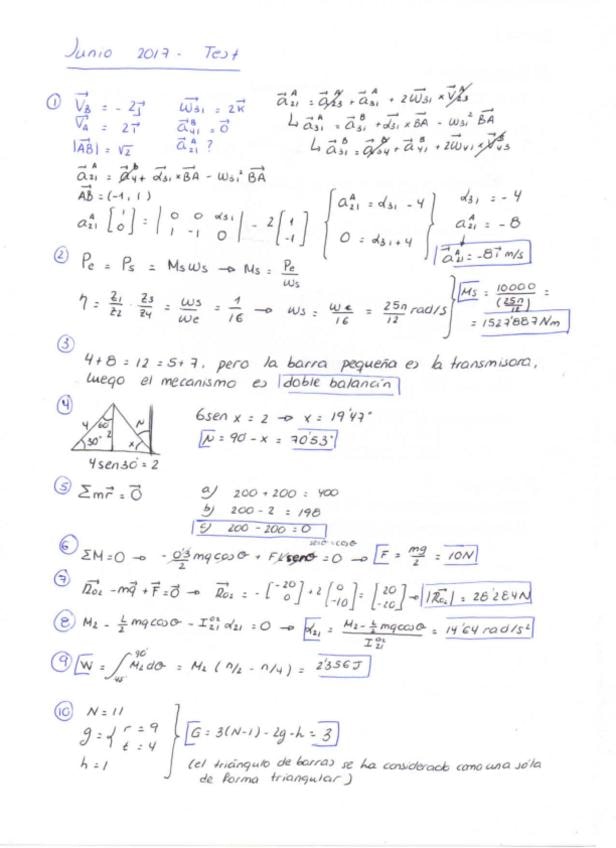 Junio 2017 - Test
① V⃗_B = -2j⃗   ω⃗₃₁ = 2k⃗   a⃗₂₁ᴬ = a⃗₂₃ᴬ + a⃗₃₁ᴬ + 2ω⃗₃₁ × V⃗₂₃ᴬ
V⃗_A = 2i⃗   a⃗₄₁ᴮ = 0⃗   ↳ a⃗₃₁ᴬ = a⃗₃₁ᴮ + α⃗₃₁ × BA - ω₃₁² BA
|AB| = √2   a⃗₂₁ᴬ ?   ↳ a⃗₃₁ᴮ = a⃗₃₄ᴮ + a⃗₄₁ᴮ + 2ω⃗₄₁ ×
a⃗₂₁ᴬ = + α⃗₃₁ × BA - ω₃₁² BA
AB = (-1, 1)
a₂₁ᴬ [1 0] = |0 0 α₃₁ 1 -1 0| - 2 [1 -1]   { a₂₁ᴬ = α₃₁ - 4   0 = α₃₁ + 4 }   α₃₁ = -4   a₂₁ᴬ = -8   a⃗₂₁ᴬ = -8i⃗ m/s
② Pe = Ps = Ms ωs → Ms = Pe/ωs
η = Z₁/Z₂ · Z₃/Z₄ = ωs/ωe = 1/16 → ωs = ωe/16 = 25π/12 rad/s   Ms = 10000/(25π/12) = 1527'887 Nm
③
4 + 8 = 12 = 5 + 7, pero la barra pequeña es la transmisora,
luego el mecanismo es doble balancín
④ 4 60° 2 N 30° x   6 sen x = 2 → x = 19'47°
N = 90 - x = 70'53°
4 sen 30° = 2
⑤ Σm r⃗ = 0⃗   a) 200 + 200 = 400
b) 200 - 2 = 198
c) 200 - 200 = 0
senθ = cosθ
⑥ ΣM = 0 → - 0'3/2 mg cosθ + F senθ = 0 → F = mg/2 = 10N
⑦ R⃗₀₂ - mg⃗ + F⃗ = 0⃗ → R⃗₀₂ = - [-20 0] + 2 [0 -10] = [20 -20] → |R⃗₀₂| = 28'284N
⑧ M₂ - L/2 mg cosθ - I₂₁⁰² α₂₁ = 0 → α₂₁ = (M₂ - L/2 mg cosθ)/I₂₁⁰² = 14'64 rad/s²
⑨ W = ∫₄₅⁹⁰° M₂ dθ = M₂ (π/2 - π/4) = 2'356J
⑩ N = 11
g = { r = 9   t = 4   G = 3(N-1) - 2g - h = 3
h = 1   (el triángulo de barras se ha considerado como una sóla
de forma triangular)